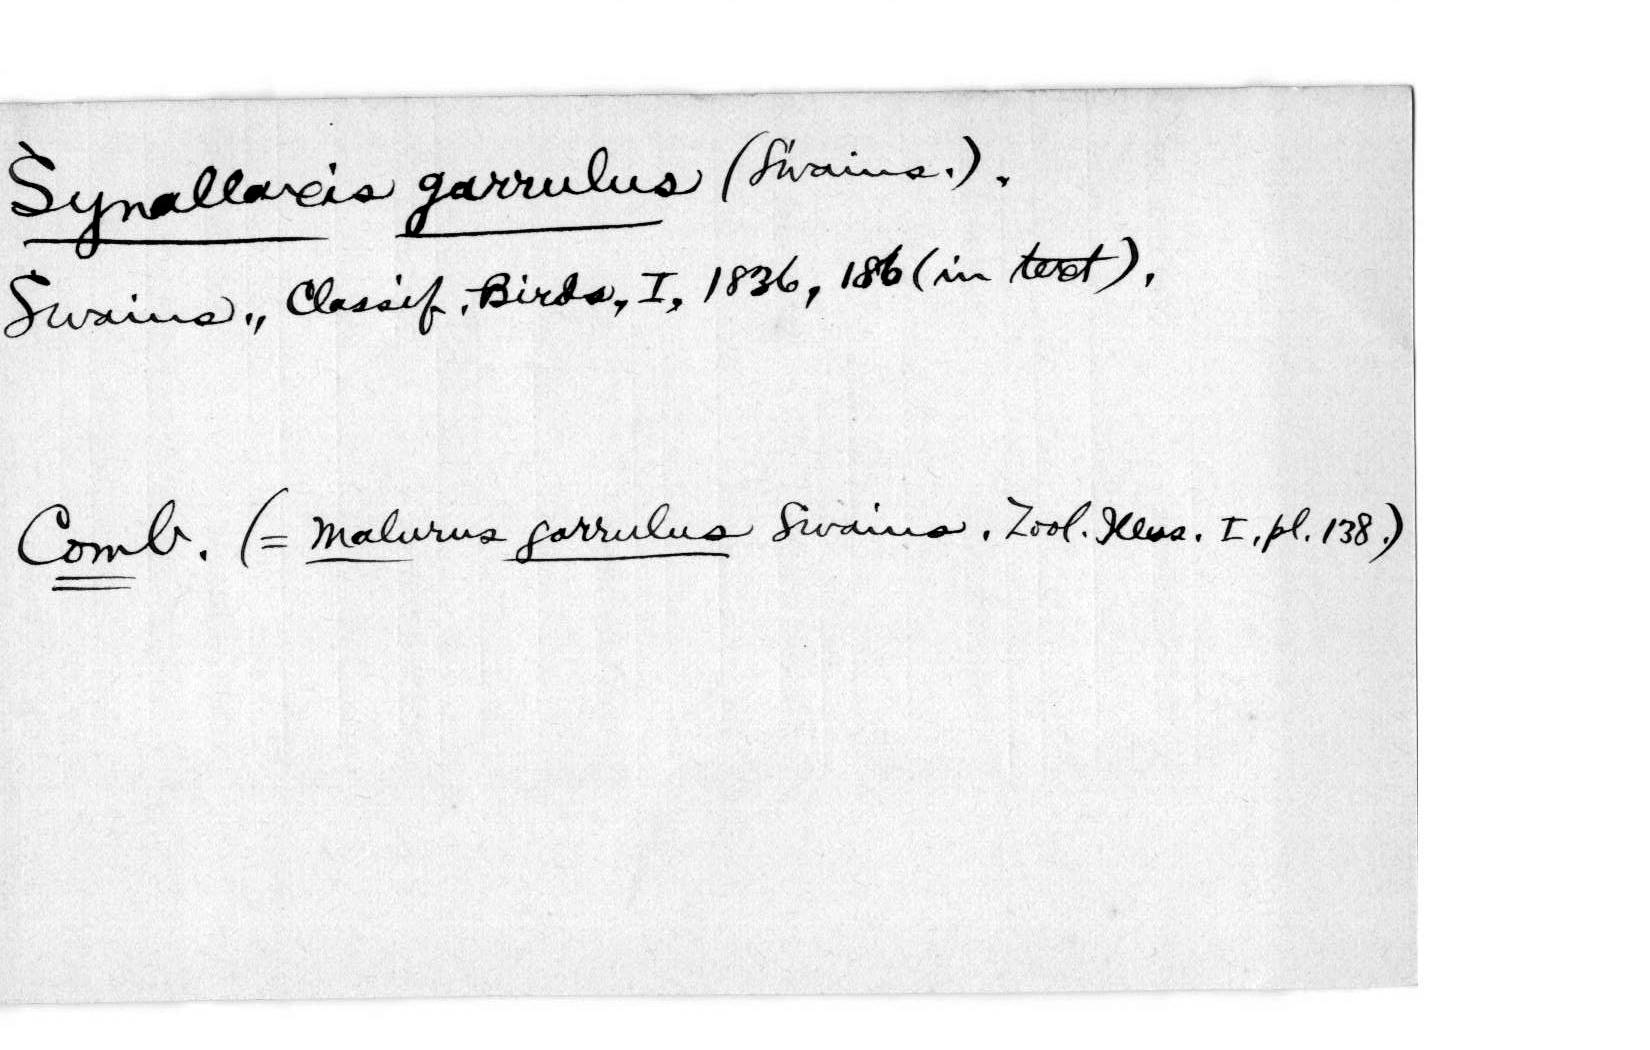 Synallaxis garrulus (Swains.).
Swains., Classif. Birds, I, 1836, 186 (in text).
Comb. (= Malurus garrulus Swains. Zool. Illus. I, pl. 138.)